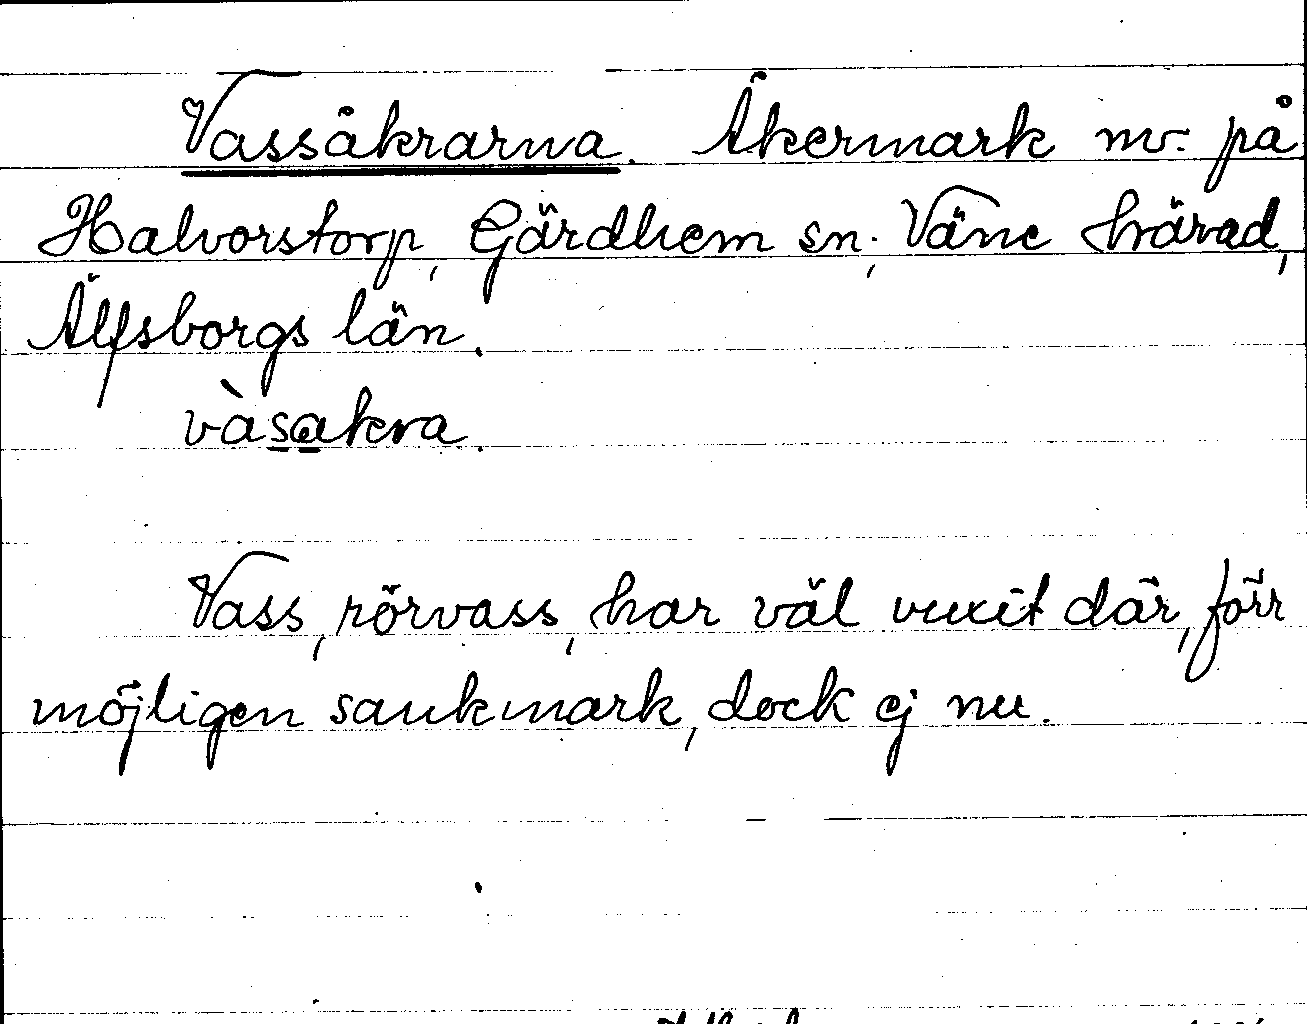 Vassåkrarna. Åkermark nv. på
Halvorstorp, Gärdhem sn., Väne härad,
Älfsborgs län.
vàsakra.
Vass, rörvass, har väl vuxit där, förr
möjligen saukmark, dock ej nu.